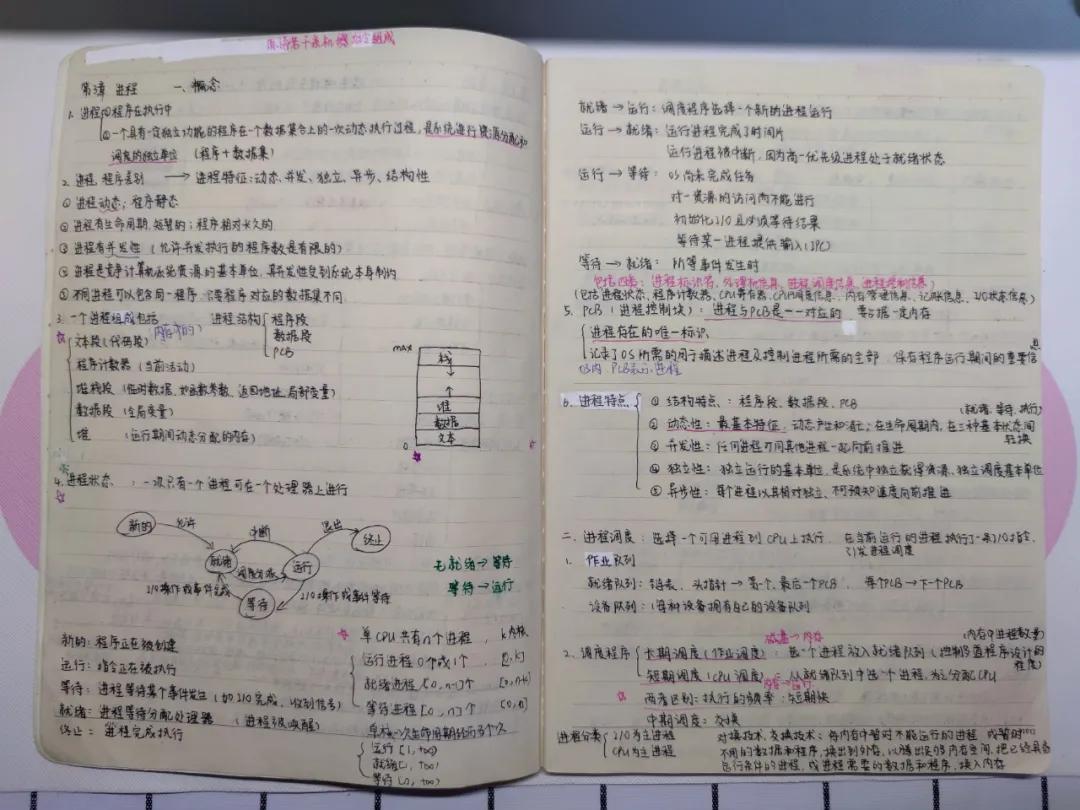 第3章 进程 一、概念
1. 进程:程序在执行中
①一个具有一定独立功能的程序在一个数据集合上的一次动态执行过程,是系统进行资源分配和
调度的独立单位 (程序+数据集)
2. 进程、程序差别 → 进程特征:动态、并发、独立、异步、结构性
① 进程动态;程序静态
② 进程有生命周期,短暂的;程序相对长久的
③ 进程有并发性(允许并发执行的程序数是有限的)
④ 进程是竞争计算机系统资源的基本单位,其并发性受到系统本身制约
⑤ 不同进程可以包含同一程序,只要程序对应的数据集不同
3. 一个进程组成包括 (内存中的)
文本段(代码段)
程序计数器(当前活动)
堆栈段(临时数据,如函数参数、返回地址、局部变量)
数据段(全局变量)
堆 (运行期间动态分配的内存)
进程结构
程序段
数据段
PCB
max
栈
↓
↑
堆
数据
文本
0
4. 进程状态 :一次只有一个进程可在一个处理器上进行
新的
允许
中断
退出
终止
就绪
运行
调度分派
I/O操作或事件完成
等待
I/O操作或事件等待
无就绪→等待
等待→运行
新的:程序正在被创建
运行:指令正在被执行
等待:进程等待某个事件发生(如I/O完成、收到信号)
就绪:进程等待分配处理器 (进程被唤醒)
终止:进程完成执行
单CPU共有n个进程, k内核
运行进程0个或1个 [0,k]
就绪进程[0,n-1]个 [0,n-k]
等待进程[0,n]个 [0,n]
运行[1,+∞)
就绪[1,+∞)
等待[0,+∞)
就绪→运行:调度程序选择一个新的进程运行
运行→就绪:运行进程完成了时间片
运行进程被中断,因为高一优先级进程处于就绪状态
运行→等待: OS尚未完成任务
对一资源的访问尚不能进行
初始化I/O且必须等待结果
等待某一进程提供输入(IPC)
等待→就绪: 所等事件发生时
包括四类:进程标识符、处理机信息、进程调度信息、进程控制信息
(包括进程状态、程序计数器、CPU寄存器、CPU调度信息、内存管理信息、记账信息、I/O状态信息)
5. PCB(进程控制块):进程与PCB是一一对应的 要占据一定内存
进程存在的唯一标识
记录了OS所需的用于描述进程及控制进程所需的全部
保存程序运行期间的重要信
息
PCB表示进程
6. 进程特点
① 结构特点:程序段、数据段、PCB
(就绪、等待、执行)
② 动态性:最基本特征,动态产生和消亡;在生命周期内,在三种基本状态间
转换
③ 并发性:任何进程可同其他进程一起向前推进
④ 独立性:独立运行的基本单位,是系统中独立获得资源、独立调度基本单位
⑤ 异步性:每个进程以其相对独立、不可预知速度向前推进
二、进程调度:选择一个可用进程到CPU上执行.
在当前运行的进程执行了一条I/O指令,
引发进程调度
1. 作业队列
就绪队列:链表,头指针→第一个、最后一个PCB, 每个PCB→下一个PCB
设备队列:(每种设备拥有自己的设备队列)
磁盘→内存
(内存中进程数量)
2. 调度程序
长期调度(作业调度):选一个进程放入就绪队列(控制多道程序设计的
程度)
短期调度(CPU调度):从就绪队列中选一个进程,为它分配CPU
两者区别:执行的频率:短期快
中期调度:交换
进程分类
I/O为主进程
CPU为主进程
对换技术、交换技术:将内存中暂时不能运行的进程,或暂时
不用的数据和程序,换出到外存,以腾出足够内存空间,把已经具备
运行条件的进程,或进程需要的数据和程序,换入内存